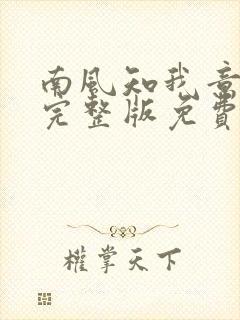 南风知我意
完整版免费
權掌天下